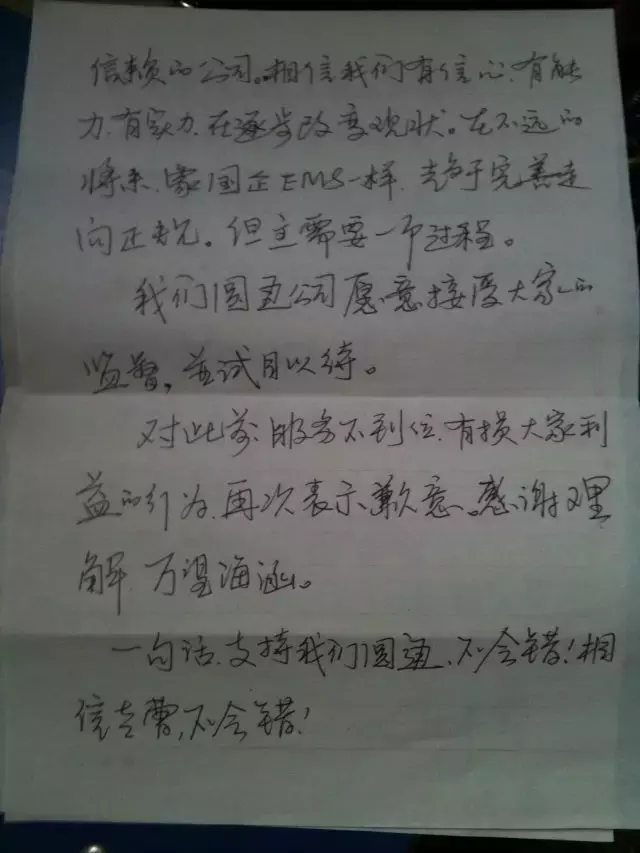 信赖的公司。相信我们有信心、有能
力、有实力、在逐步改变现状。在不远的
将来、像国企EMS一样、趋于完善走
向正规。但这需要一个过程。
我们圆通公司愿意接受大家的
监督，并拭目以待。
对此前服务不到位、有损大家利
益的行为、再次表示歉意。感谢理
解、万望海涵。
一句话、支持我们圆通、不会错！相
信老曹，不会错！